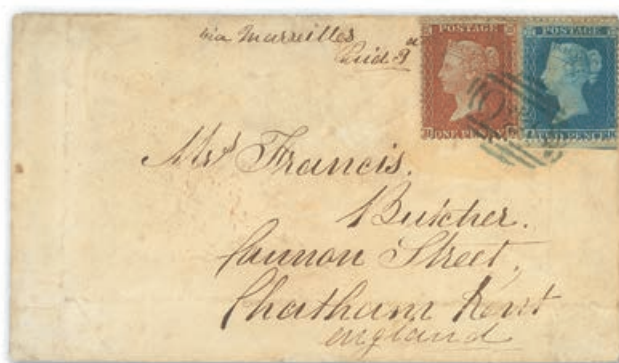 via Marseilles
Paid 3d
POSTAGE POSTAGE
ONE PENNY TWO PENCE
Mrs Francis.
Butcher.
Cannon Street,
Chatham Kent
England